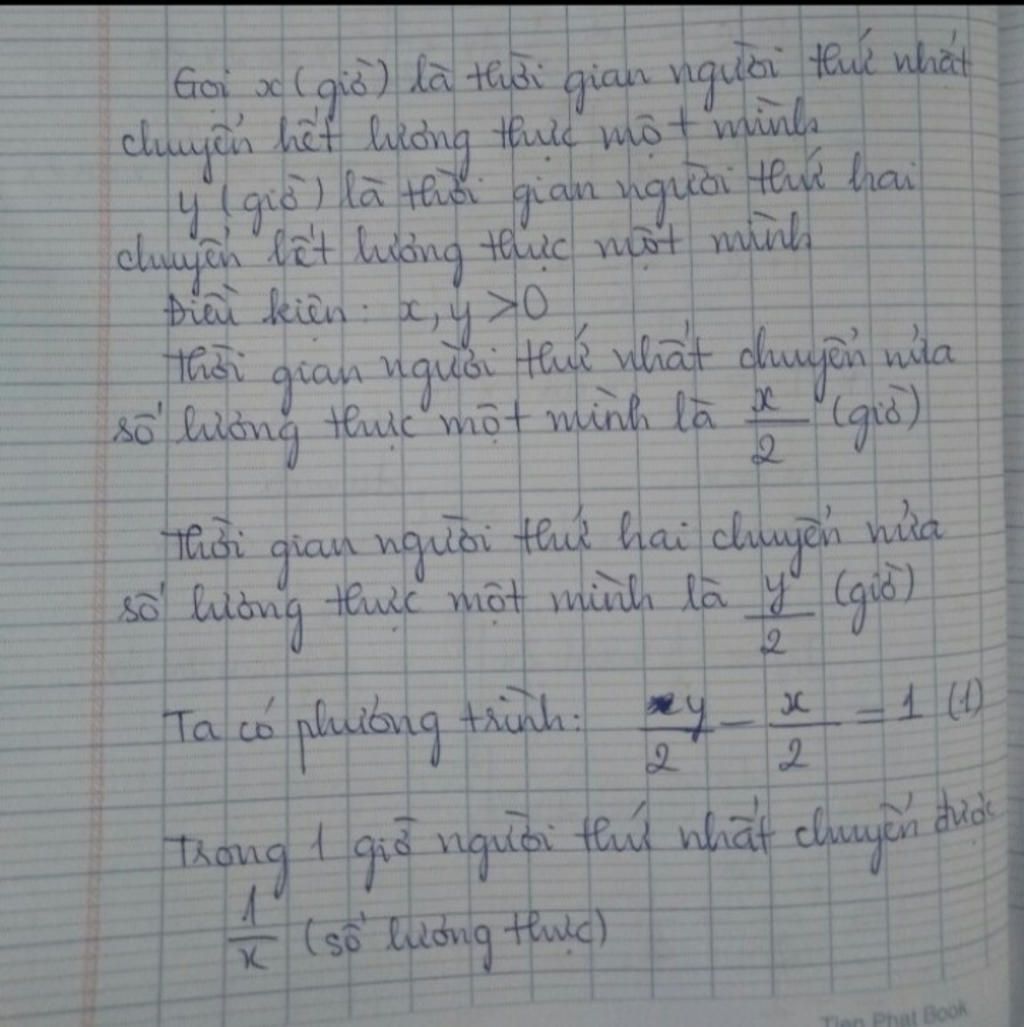 Gọi x (giờ) là thời gian người thứ nhất
chuyển hết lương thực một mình
y (giờ) là thời gian người thứ hai
chuyển hết lương thực một mình
Điều kiện: x, y > 0
Thời gian người thứ nhất chuyển nửa
số lương thực một mình là x/2 (giờ)
Thời gian người thứ hai chuyển nửa
số lương thực một mình là y/2 (giờ)
Ta có phương trình: y/2 - x/2 = 1 (1)
Trong 1 giờ người thứ nhất chuyển được
1/x (số lương thực)
Tien Phat Book